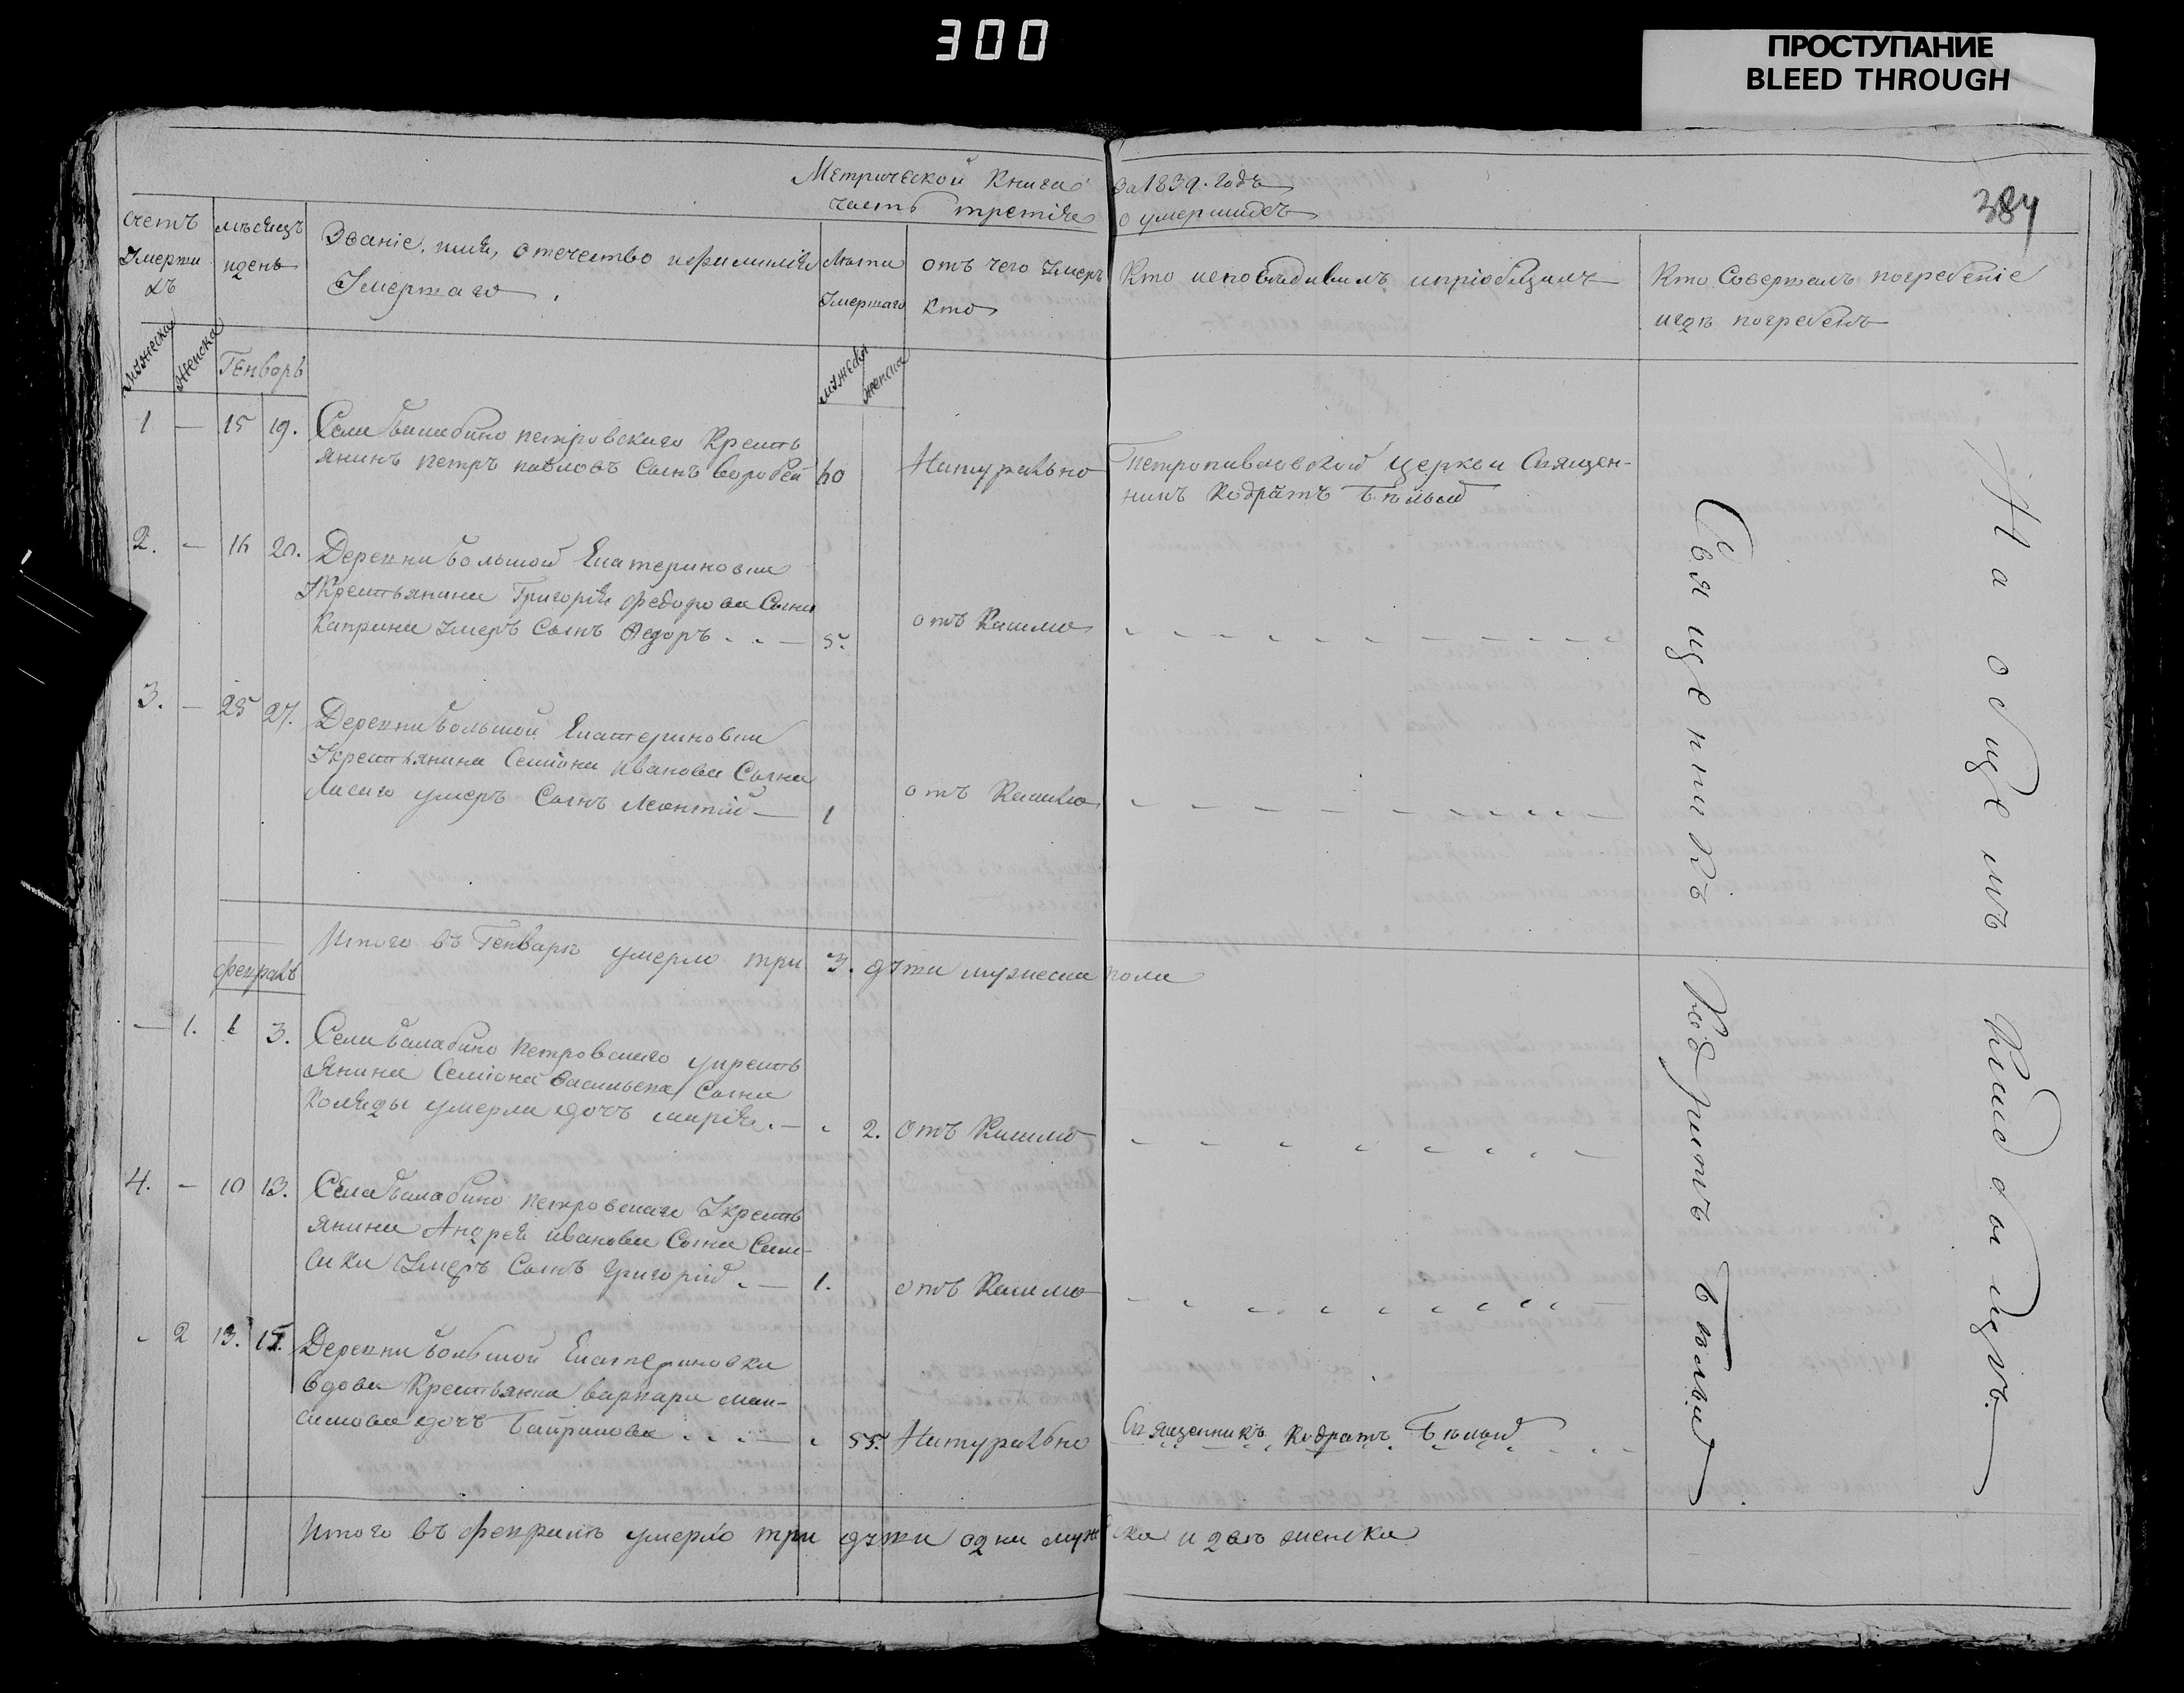 300
ПРОСТУПАНИЕ
BLEED THROUGH
Метрической Книги за 1839. годъ
384
часть третiя о умершихъ
счетъ Умершихъ
мѣсяцъ и день
Званiе, имя, отечество и фамилiя Умершаго
Лѣта Умершаго
отъ чего Умеръ кто
Кто исповѣдивалъ и прiобщалъ
Кто Совершалъ погребенiе
и гдѣ погребенъ
мужеска
женска
Генварь
мужеска
женска
1 — 15 19. Села балабино петровскаго Кресть
янинъ петръ павловъ Сынъ воробей 60 Натурально
Петропавловской Церкви Священ-
никъ Кодратъ Бѣлый
2. — 16 20. Деревни большой Екатериновки
Укрестьянина Григорiя федорова Сына
Каприна Умеръ Сынъ Федоръ 5. отъ Кашлю
3. — 25 27. Деревни большой Екатериновки
Укрестьянина Семiона Иванова Сына
Лисаго умеръ Сынъ Леонтiй — 1 отъ Кашлю
Итого въ Генварѣ умерло три 3. д҃ши мужеска пола
февраль
— 1. 1 3. Села балабино петровскаго укресть
янина Семiона Васильева Сына
Коляды умерла дочь марiя. — 2. Отъ Кашлю
4. — 10 13. Села балабино петровскаго Укресть
янина Андрея иванова Сына
Умеръ Сынъ Григорiй — 1. отъ Кашлю
2 13. 15. Деревни большой Екатериновки
вдова Крестьянка варвара мак-
симова дочь 55. Натурально
Священникъ Кодратъ Бѣлый
Итого въ февралѣ умерло три д҃ши одна мужска и двѣ женска
Священникъ Кодратъ Бѣлый
На общемъ Кладбищѣ